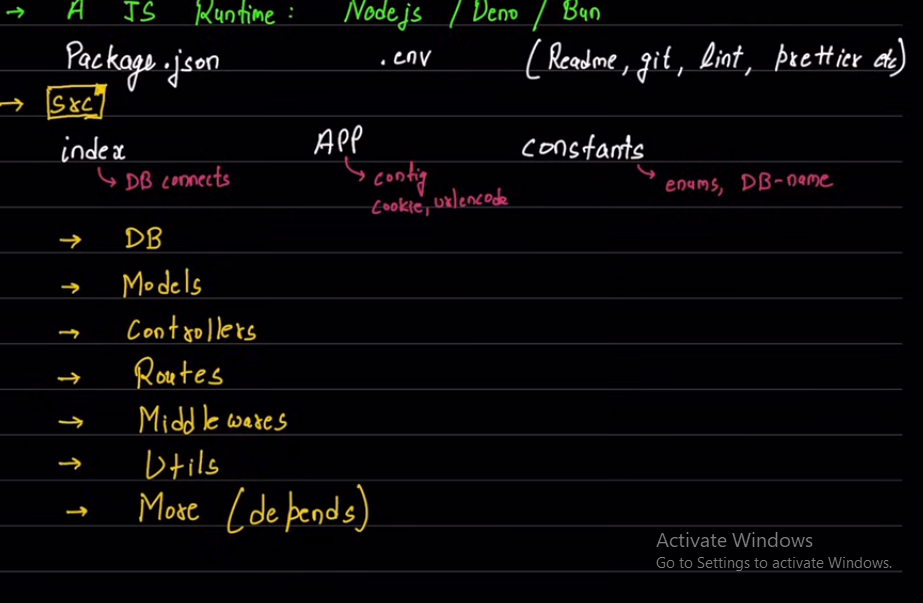 → A JS Runtime: Nodejs / Deno / Bun
Package.json .env (Readme, git, lint, prettier etc)
→ src
index APP constants
↳ DB connects ↳ config ↳ enums, DB-name
cookie, urlencode
→ DB
→ Models
→ Controllers
→ Routes
→ Middlewares
→ Utils
→ More (depends)
Activate Windows
Go to Settings to activate Windows.